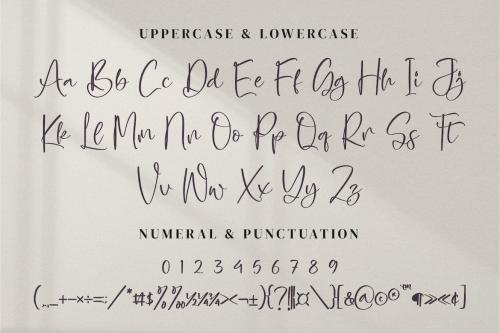 UPPERCASE & LOWERCASE
Aa Bb Cc Dd Ee Ff Gg Hh Ii Jj
Kk Ll Mm Nn Oo Pp Qq Rr Ss Tt
Vv Ww Xx Yy Zz
NUMERAL & PUNCTUATION
0 1 2 3 4 5 6 7 8 9
(.,_+−×÷=;/*#$%‰½¼¾><¬±){?!¦|¤\}[&@©®™¶»«¢]